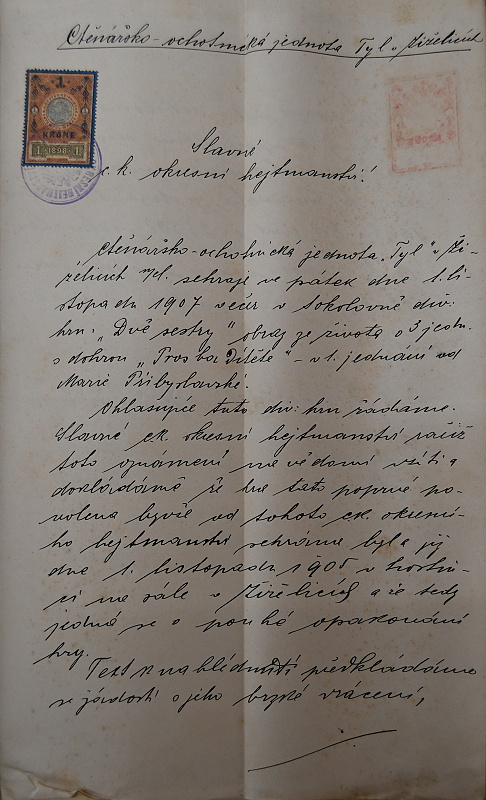 Čtenářsko-ochotnická jednota Tyl v Žiželicích
1
KRONE
1 1898 1
Slavné
c. k. okresní hejtmanství!
Čtenářsko-ochotnická jednota „Tyl“ v Ži-
želicích n/C. sehraje ve pátek dne 1. li-
stopadu 1907 večer v Sokolovně div.
hru: „Dvě sestry“ obraz ze života o 3 jedn.
s dohrou „Prosba Dítěte“ – v 1. jednání od
Marie Přibyslavské.
Ohlašujíce tuto div. hru žádáme.
Slavné c.k. okresní hejtmanství račiž
toto oznámení na vědomí vzíti a
dokládáme že hra tato poprvé po-
volena byvše od tohoto ck. okresní-
ho hejtmanství sehrána byla již
dne 1. listopadu 1905 v hostin-
ci na sále v Žiželicích a že tedy
jedná se o pouhé opakování
hry.
Text k nahlédnutí předkládáme
se žádostí o jeho brzké vrácení,